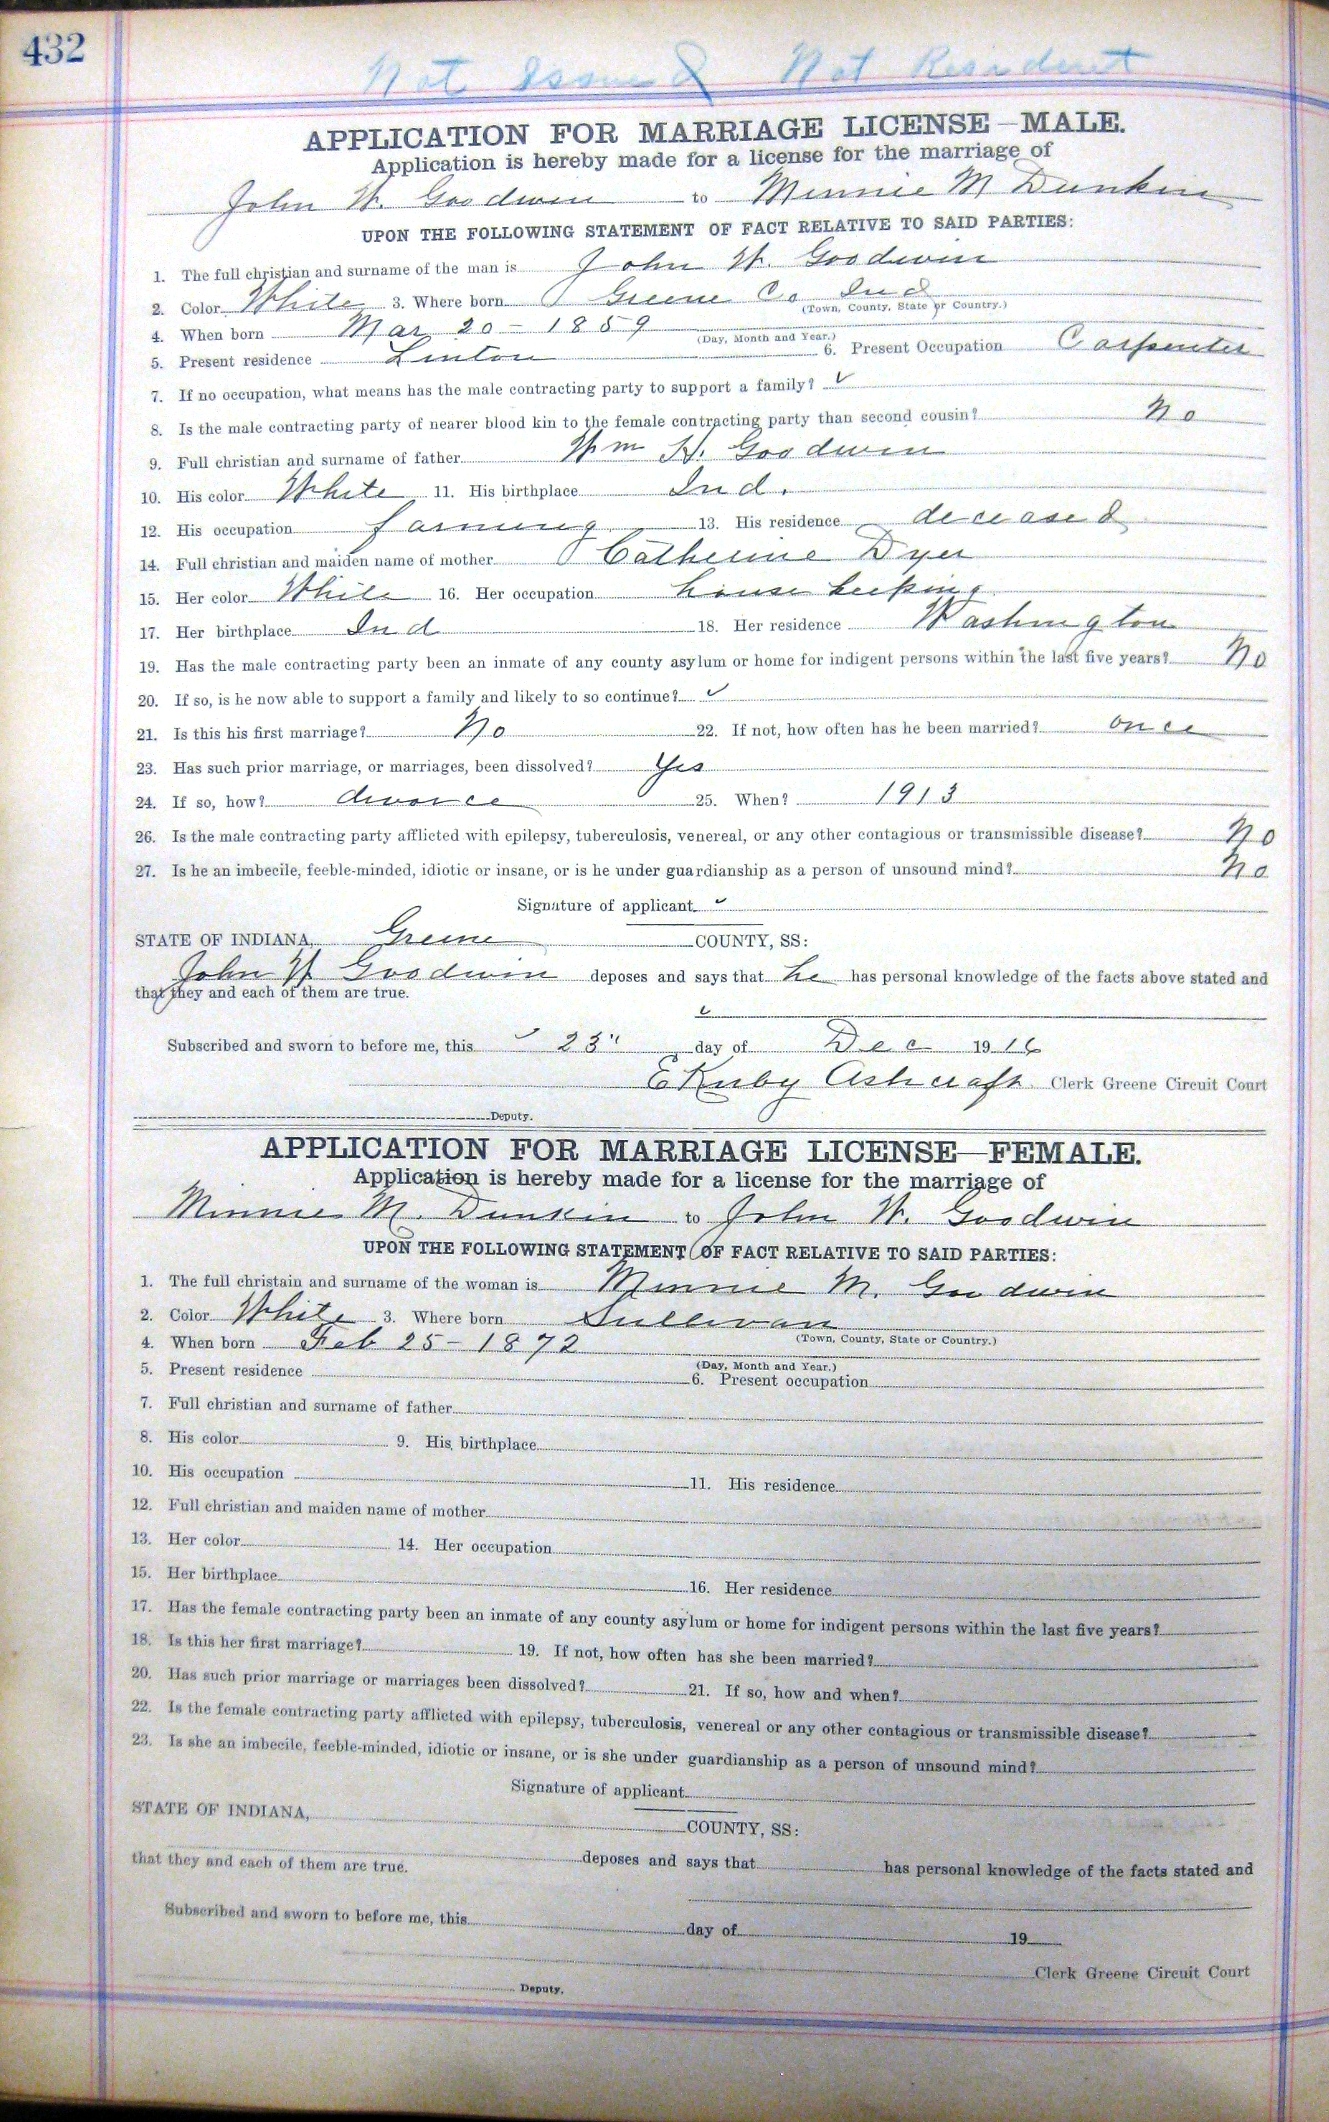 432
Not Issued Not Resident
APPLICATION FOR MARRIAGE LICENSE—MALE.
Application is hereby made for a license for the marriage of
John W. Goodwin to Minnie M Dunkin
UPON THE FOLLOWING STATEMENT OF FACT RELATIVE TO SAID PARTIES:
1. The full christian and surname of the man is John W. Goodwin
2. Color White 3. Where born Greene Co Ind
(Town, County, State or Country.)
4. When born Mar 20 - 1859
(Day, Month and Year.)
5. Present residence Linton 6. Present Occupation Carpenter
7. If no occupation, what means has the male contracting party to support a family? ✓
8. Is the male contracting party of nearer blood kin to the female contracting party than second cousin? No
9. Full christian and surname of father Wm H. Goodwin
10. His color White 11. His birthplace Ind.
12. His occupation farming 13. His residence deceased
14. Full christian and maiden name of mother Catherine Dyer
15. Her color White 16. Her occupation house keeping
17. Her birthplace Ind 18. Her residence Washington
19. Has the male contracting party been an inmate of any county asylum or home for indigent persons within the last five years? No
20. If so, is he now able to support a family and likely to so continue? ✓
21. Is this his first marriage? No 22. If not, how often has he been married? once
23. Has such prior marriage, or marriages, been dissolved? Yes
24. If so, how? divorce 25. When? 1913
26. Is the male contracting party afflicted with epilepsy, tuberculosis, venereal, or any other contagious or transmissible disease? No
27. Is he an imbecile, feeble-minded, idiotic or insane, or is he under guardianship as a person of unsound mind? No
Signature of applicant ✓
STATE OF INDIANA, Greene COUNTY, SS:
John W Goodwin deposes and says that he has personal knowledge of the facts above stated and
that they and each of them are true.
✓
Subscribed and sworn to before me, this ✓ 23" day of Dec 1916
E Kirby Ashcraft Clerk Greene Circuit Court
Deputy.
APPLICATION FOR MARRIAGE LICENSE—FEMALE.
Application is hereby made for a license for the marriage of
Minnie M. Dunkin to John W. Goodwin
UPON THE FOLLOWING STATEMENT OF FACT RELATIVE TO SAID PARTIES:
1. The full christain and surname of the woman is Minnie M. Goodwin
2. Color White 3. Where born Sullivan
(Town, County, State or Country.)
4. When born Feb 25 - 1872
(Day, Month and Year.)
5. Present residence 6. Present occupation
7. Full christian and surname of father
8. His color 9. His birthplace
10. His occupation 11. His residence
12. Full christian and maiden name of mother
13. Her color 14. Her occupation
15. Her birthplace 16. Her residence
17. Has the female contracting party been an inmate of any county asylum or home for indigent persons within the last five years?
18. Is this her first marriage? 19. If not, how often has she been married?
20. Has such prior marriage or marriages been dissolved? 21. If so, how and when?
22. Is the female contracting party afflicted with epilepsy, tuberculosis, venereal or any other contagious or transmissible disease?
23. Is she an imbecile, feeble-minded, idiotic or insane, or is she under guardianship as a person of unsound mind?
Signature of applicant
STATE OF INDIANA, COUNTY, SS:
deposes and says that has personal knowledge of the facts stated and
that they and each of them are true.
Subscribed and sworn to before me, this day of 19
Clerk Greene Circuit Court
Deputy.